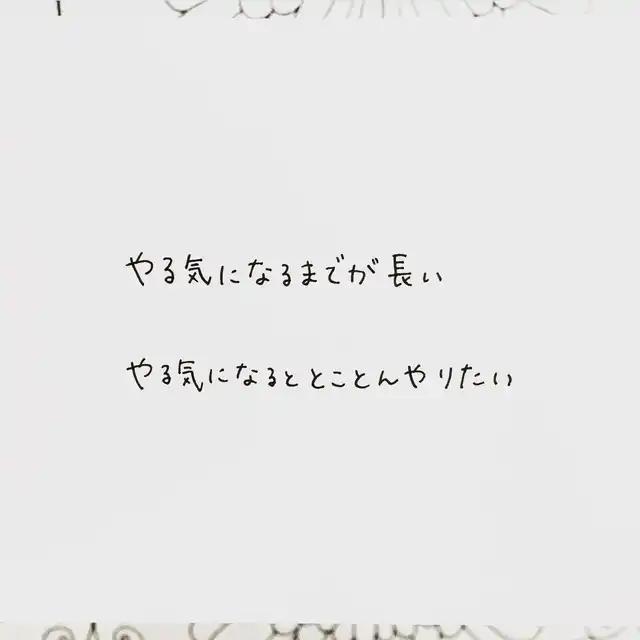 やる気になるまでが長い
やる気になるととことんやりたい